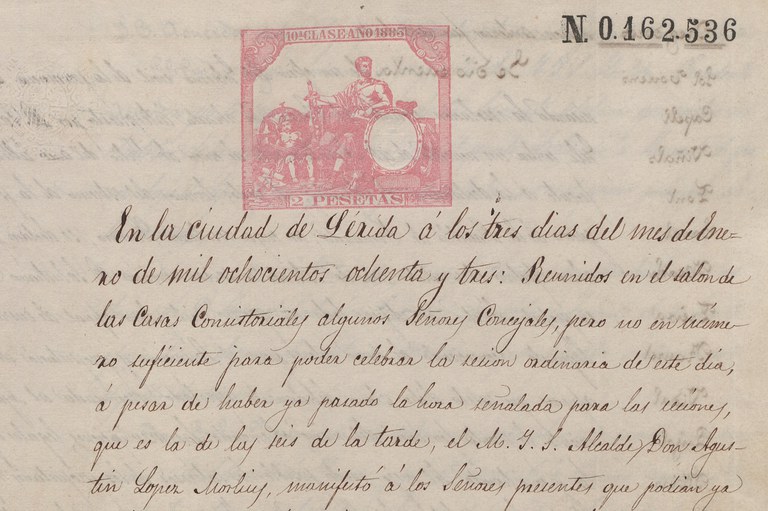 N. 0.162.536
10ª CLASE AÑO 1883
2 PESETAS
En la ciudad de Lérida á los tres dias del mes de Ene-
ro de mil ochocientos ochenta y tres: Reunidos en el salon de
las Casas Consistoriales algunos Señores Concejales, pero no en núme-
ro suficiente para poder celebrar la sesion ordinaria de este dia,
á pesar de haber ya pasado la hora señalada para las seciones,
que es la de las seis de la tarde, el M. I. S. Alcalde Don Agus-
tin Lopez Morlius, manifestó á los Señores presentes que podian ya